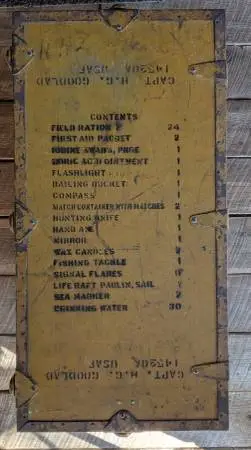 CAPT. H.G. GOODLAD
14520A USAF
CONTENTS
FIELD RATION 24
FIRST AID PACKET 2
IODINE SWABS, PKGE 1
BORIC ACID OINTMENT 1
FLASHLIGHT 1
BAILING BUCKET 1
COMPASS 1
MATCH CONTAINER WITH MATCHES 2
HUNTING KNIFE 1
HAND AXE 1
MIRROR 1
WAX CANDLES
FISHING TACKLE 1
SIGNAL FLARES
LIFE RAFT PAULIN, SAIL
SEA MARKER 2
DRINKING WATER 30
CAPT. H.G. GOODLAD
14520A USAF